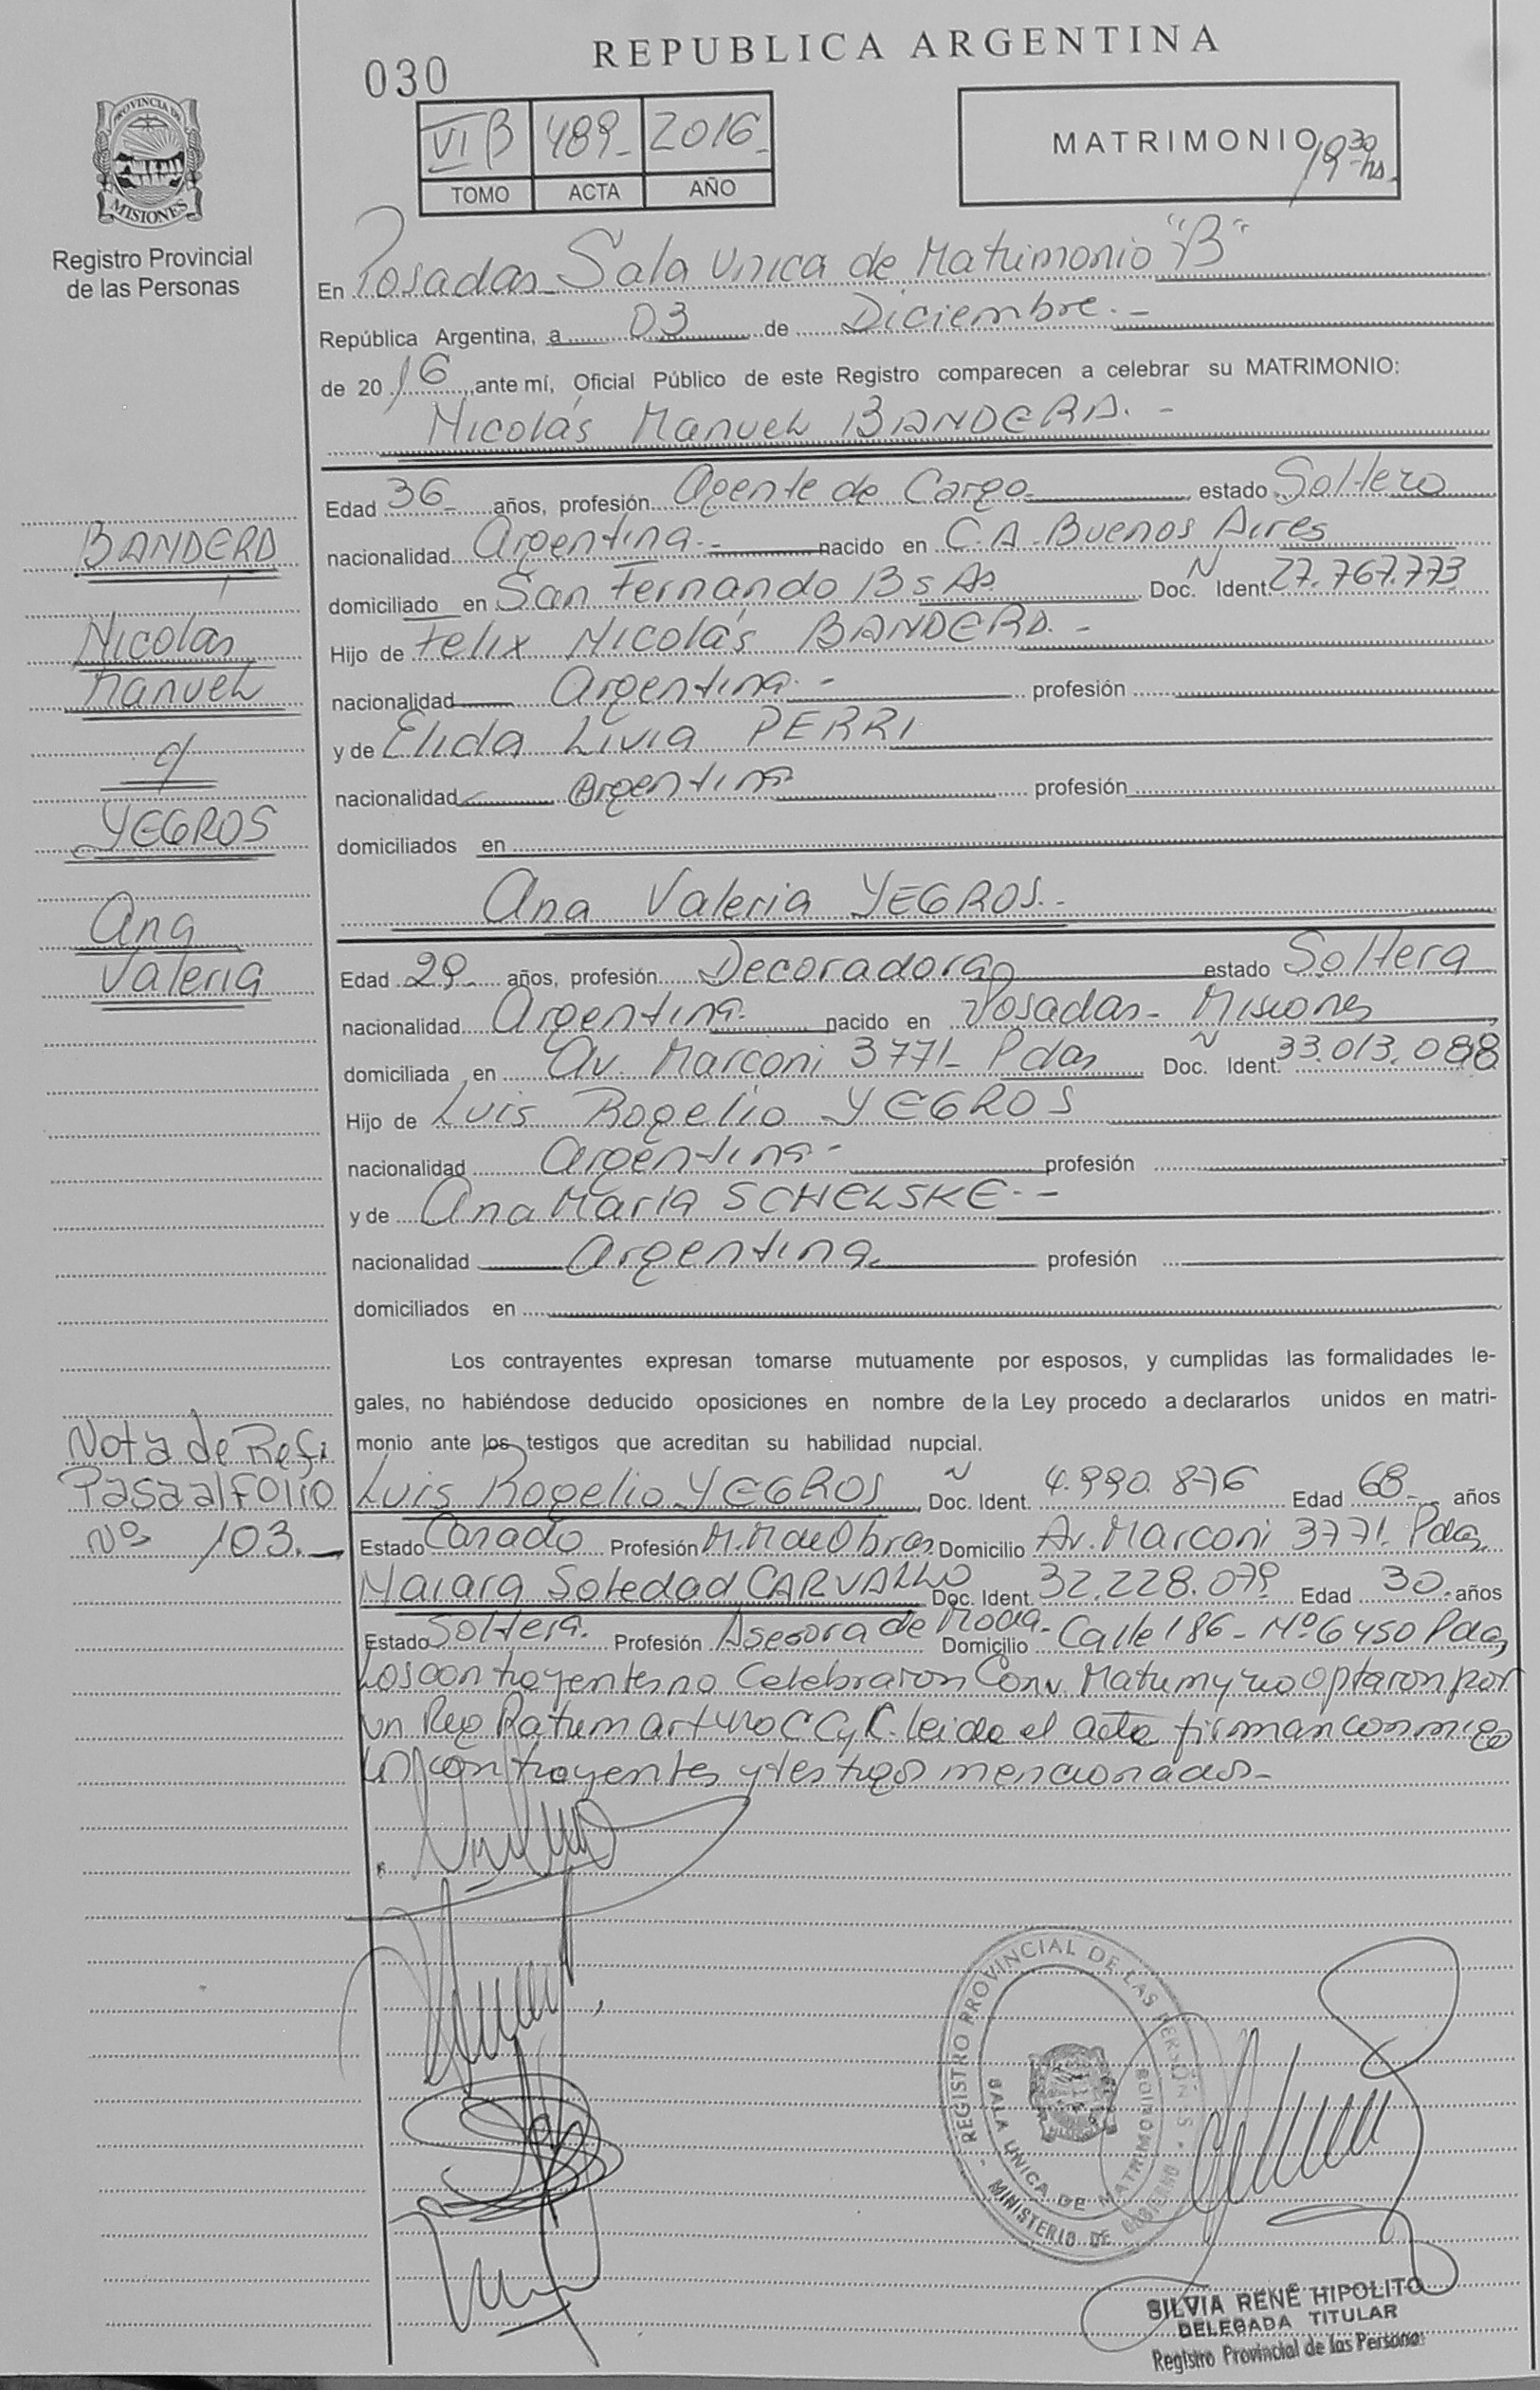 REPUBLICA ARGENTINA
030
PROVINCIA DE MISIONES
Registro Provincial
de las Personas
VI B 489- 2016-
TOMO ACTA AÑO
MATRIMONIO 19 30 hs.
En Posadas- Sala Unica de Matrimonio "B"
República Argentina, a 03 de Diciembre.-
de 20 16 ante mí, Oficial Público de este Registro comparecen a celebrar su MATRIMONIO:
Nicolás Manuel BANDERA.-
Edad 36- años, profesión Agente de Cargo- estado Soltero
nacionalidad Argentina.- nacido en C.A. Buenos Aires
domiciliado en San Fernando Bs As. Doc. N Ident. 27.767.773
Hijo de Felix Nicolás BANDERA.-
nacionalidad Argentina.- profesión
y de Elida Livia PERRI
nacionalidad Argentina profesión
domiciliados en
BANDERA
Nicolas
Manuel
c/
YEGROS
Ana
Valeria
Ana Valeria YEGROS.-
Edad 29- años, profesión Decoradora estado Soltera
nacionalidad Argentina.- nacido en Posadas- Misiones
domiciliada en Av. Marconi 3771- Pdas Doc. Ñ Ident. 33.013.088
Hijo de Luis Rogelio YEGROS
nacionalidad Argentina- profesión
y de Ana María SCHELSKE.-
nacionalidad Argentina profesión
domiciliados en
Los contrayentes expresan tomarse mutuamente por esposos, y cumplidas las formalidades le-
gales, no habiéndose deducido oposiciones en nombre de la Ley procedo a declararlos unidos en matri-
monio ante los testigos que acreditan su habilidad nupcial.
Nota de Ref.
Pasa al FOLIO
Nº 103.-
Luis Rogelio YEGROS Ñ Doc. Ident. 4.990.876 Edad 68- años
Estado Casado Profesión M.M de Obras Domicilio Av. Marconi 3771- Pdas
Maiara Soledad CARVALLO Doc. Ident. 32.228.079 Edad 30- años
Estado Soltera. Profesión Asesora de Moda- Domicilio Calle 186- Nº 6450 Pdas
Los contrayentes no celebraron Conv. Matrim y no optaron por
un Reg. CCyC. leida el acta firman conmigo
los contrayentes y testigos mencionados-
REGISTRO PROVINCIAL DE LAS PERSONAS
SALA UNICA DE MATRIMONIOS
MINISTERIO DE GOBIERNO
SILVIA RENÉ HIPOLITO
DELEGADA TITULAR
Registro Provincial de las Personas